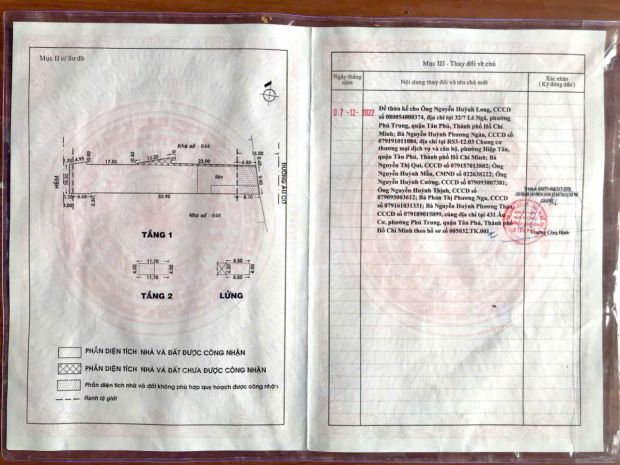 Mục II c/ Sơ đồ
Nhà số : 644
17.50
22.90
HẺM
ĐƯỜNG ÂU CƠ
Sân
52.90
8.10
Nhà số : 646
TẦNG 1
11.70
4.00
4.00
11.70
TẦNG 2
LỬNG
PHẦN DIỆN TÍCH NHÀ VÀ ĐẤT ĐƯỢC CÔNG NHẬN
PHẦN DIỆN TÍCH NHÀ VÀ ĐẤT CHƯA ĐƯỢC CÔNG NHẬN
Phần diện tích nhà và đất không phù hợp quy hoạch được công nhận
Ranh lộ giới
Mục III - Thay đổi về chủ
Ngày tháng năm
Nội dung thay đổi và tên chủ mới
Xác nhận
(Ký đóng dấu)
07-12-2022
Để thừa kế cho Ông Nguyễn Huỳnh Long, CCCD
số 080054000374, địa chỉ tại 32/7 Lê Ngã, phường
Phú Trung, quận Tân Phú, Thành phố Hồ Chí
Minh; Bà Nguyễn Huỳnh Phương Ngân, CCCD số
079191011084, địa chỉ tại RS3-12.03 Chung cư
thương mại dịch vụ và căn hộ, phường Hiệp Tân,
quận Tân Phú, Thành phố Hồ Chí Minh; Bà
Nguyễn Thị Quí, CCCD số 079157013802; Ông
Nguyễn Huỳnh Mẫn, CMND số 022638222; Ông
Nguyễn Huỳnh Cường, CCCD số 079093007381;
Ông Nguyễn Huỳnh Thịnh, CCCD số
079095003612; Bà Phan Thị Phương Nga, CCCD
số 079161031331; Bà Nguyễn Huỳnh Phương Thảo,
CCCD số 079189015899, cùng địa chỉ tại 431 Âu
Cơ, phường Phú Trung, quận Tân Phú, Thành phố
Hồ Chí Minh theo hồ sơ số 005032.TK.001